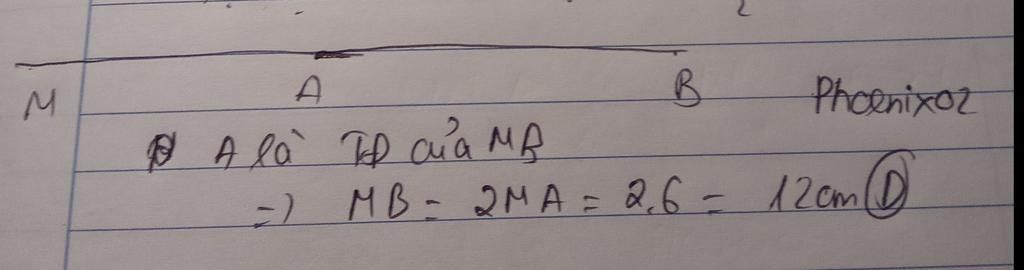 M A B Phoenix02
A là TĐ của MB
=) MB = 2MA = 2.6 = 12cm D